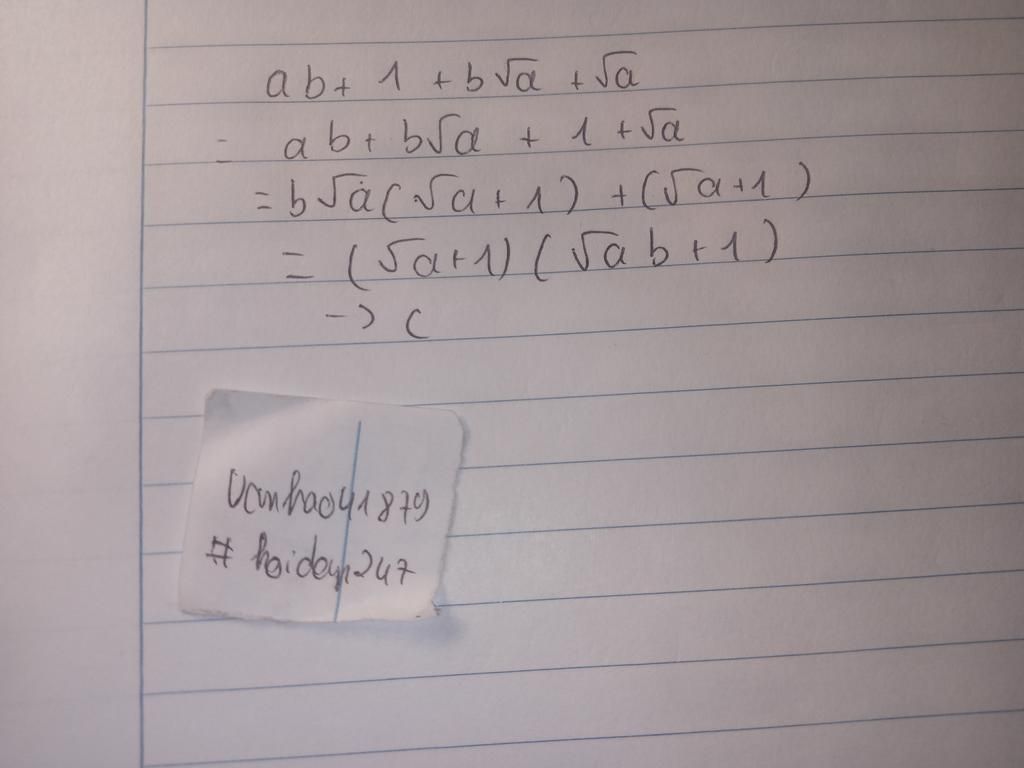 ab + 1 + b√a + √a
= ab + b√a + 1 + √a
= b√a(√a + 1) + (√a + 1)
= (√a + 1)(√a b + 1)
→ C
Vanhao41879
# hoidap247